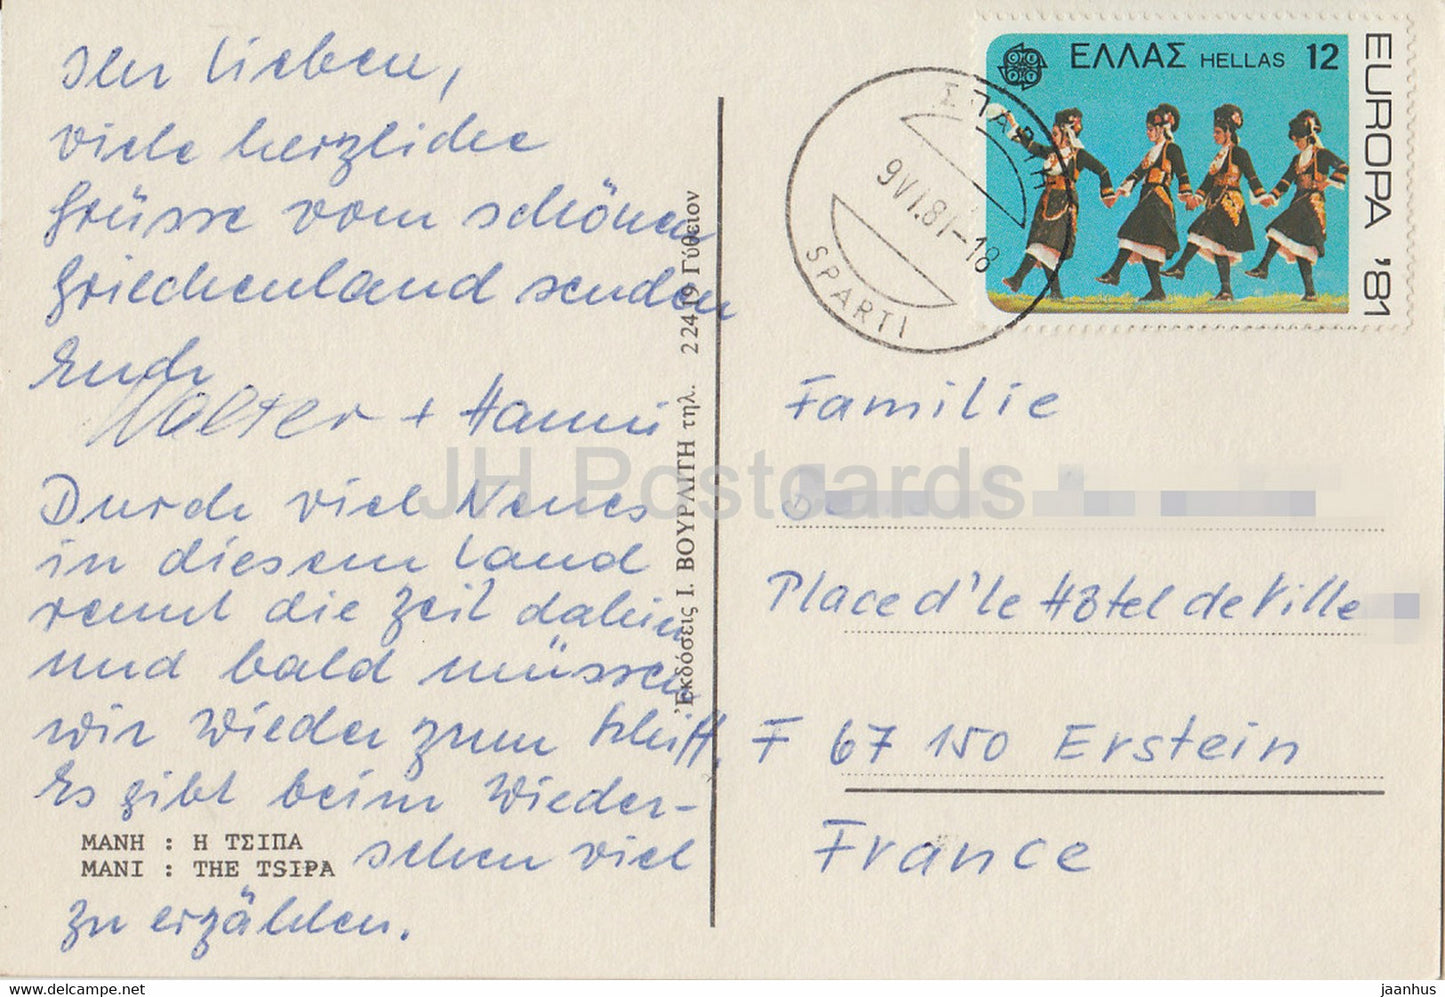 Ihr Lieben,
viele herzliche
Grüsse vom schönen
Griechenland senden
Euch
Walter + Hanni
Durch viel Neues
in diesem Land
rennt die Zeit dahin
und bald müssen
wir wieder zum Schiff.
Es gibt beim Wieder-
sehen viel
zu erzählen.
ΜΑΝΗ : Η ΤΣΙΠΑ
MANI : THE TSIPA
Ἐκδόσεις Ι. ΒΟΥΡΛΙΤΗ τηλ. 224 19 Γύθειον
ΕΛΛΑΣ HELLAS 12
EUROPA '81
ΣΠΑΡΤΗ
9VI.81-18
SPARTI
Familie
Place d'le Hôtel de Ville
F 67 150 Erstein
France
JH Postcards
www.delcampe.net
jaanhus